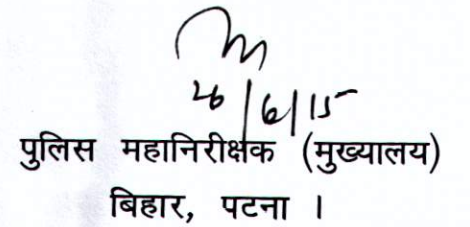 26/6/15
पुलिस महानिरीक्षक (मुख्यालय)
बिहार, पटना ।